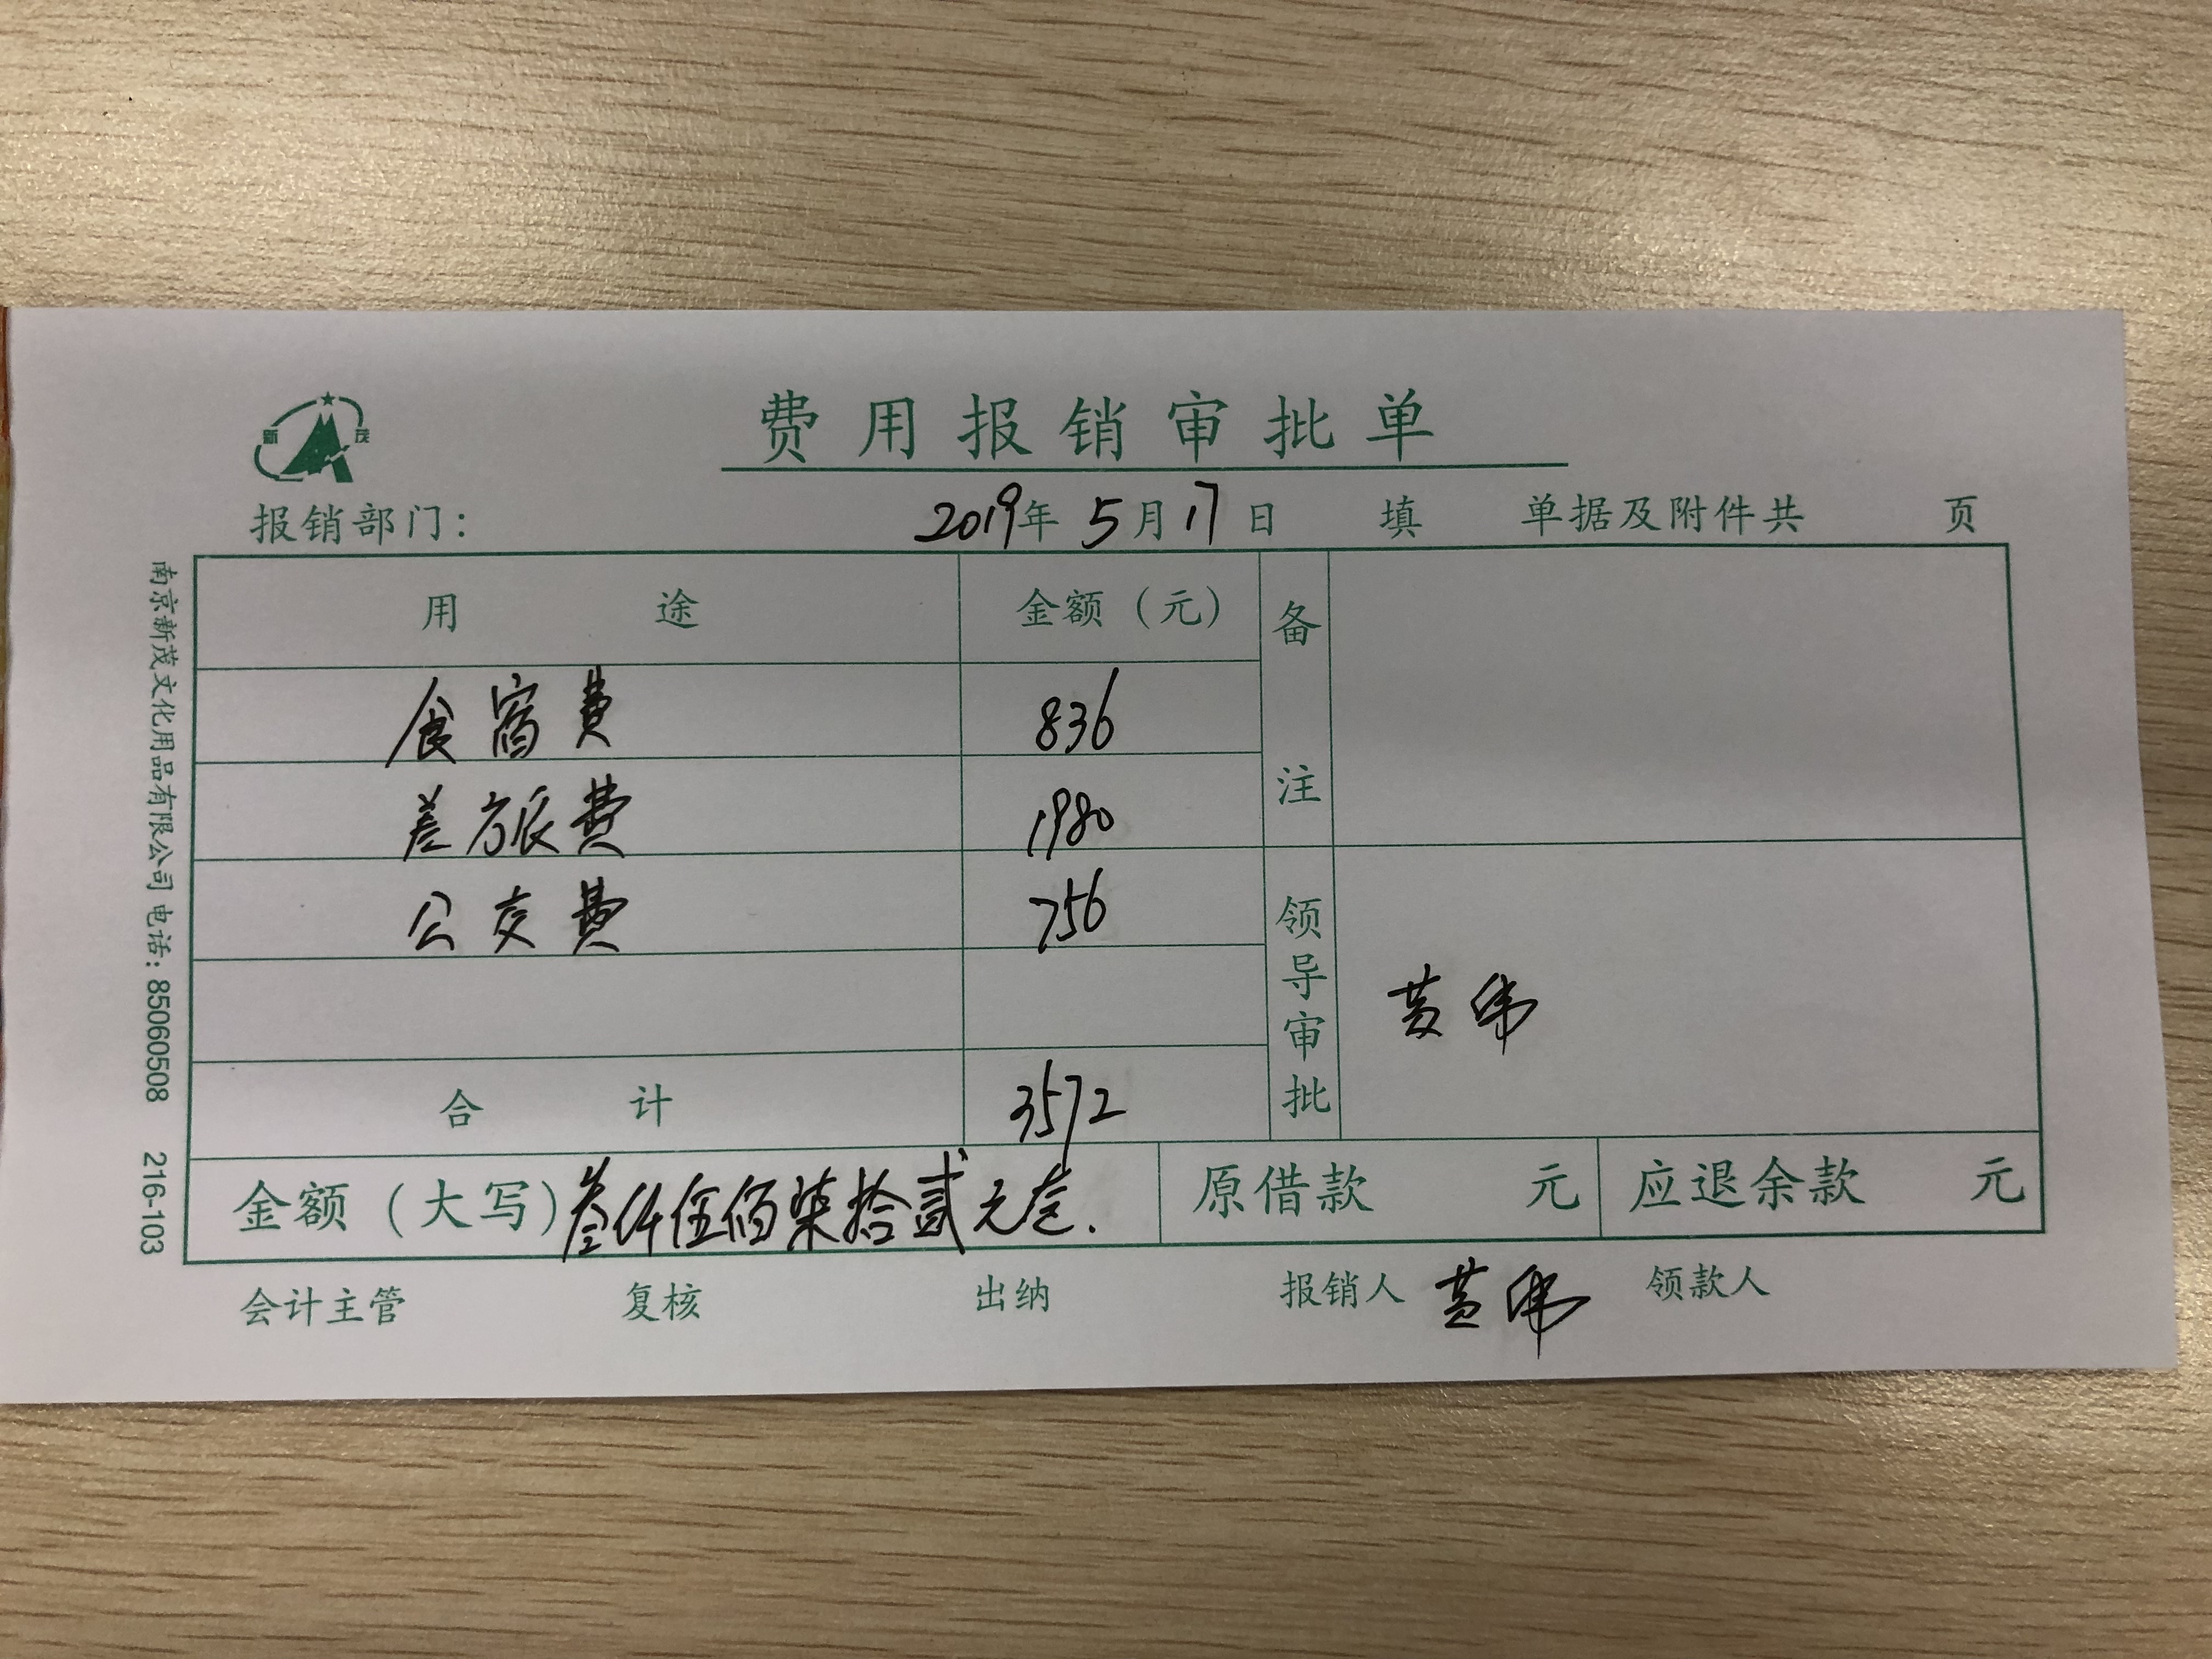 新 茂
费用报销审批单
报销部门： 2019年 5月 17日 填 单据及附件共 页
用 途 金额（元） 备注
食宿费 836
差旅费 1980
公交费 756 领导审批
合 计 3572
金额（大写）叁仟伍佰柒拾贰元整. 原借款 元 应退余款 元
会计主管 复核 出纳 报销人 领款人
南京新茂文化用品有限公司 电话：85060508 216-103